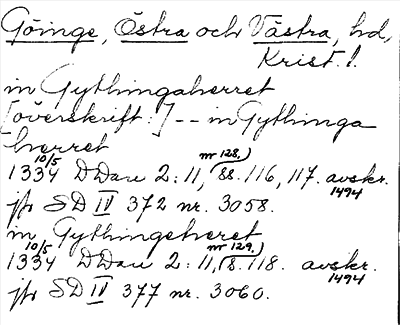 Göinge, Östra och Västra, hd,
Krist. l.
in Gythingaherret
[överskrift:] -- in Gythinga
herret
1334 10/5 DDan 2:11, (nr 128,) s. 116, 117. avskr. 1494
jfr SD IV 372 nr. 3058.
in Gythingeherret
1334 10/5 DDan 2:11, (nr 129.) s. 118. avskr. 1494
jfr SD IV 377 nr. 3060.